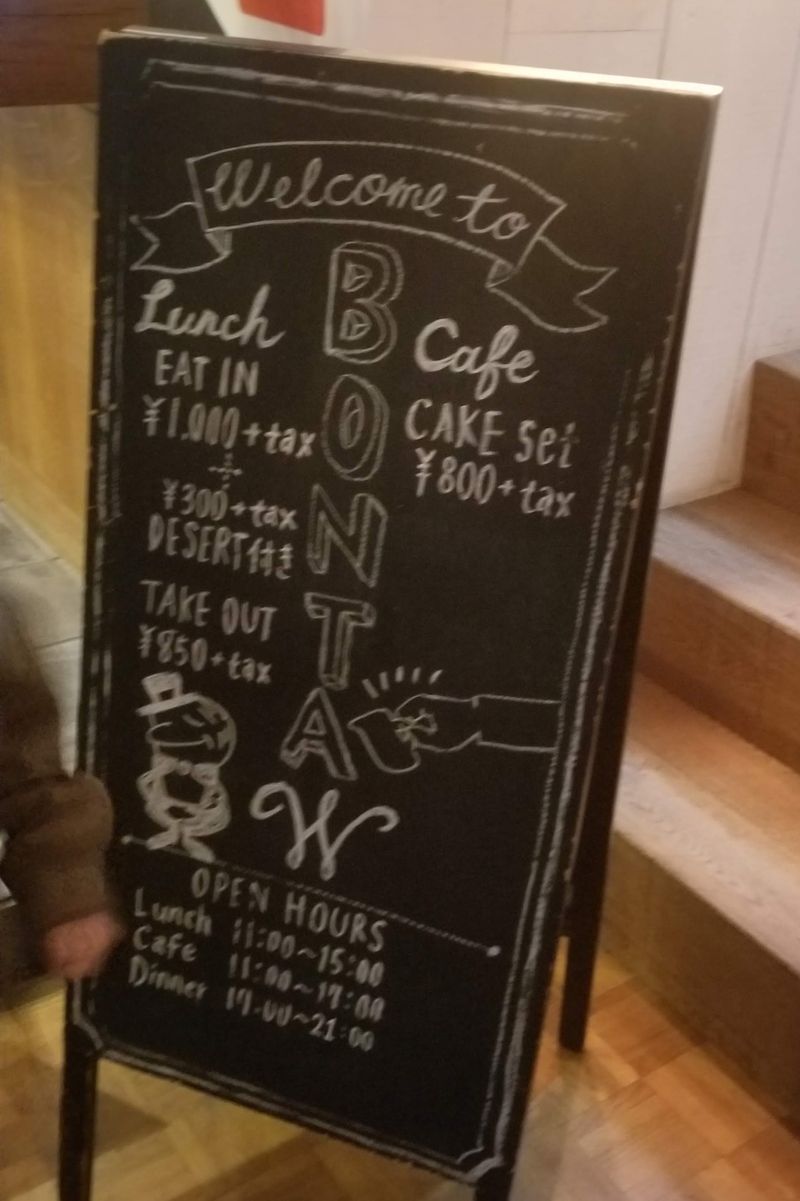 Welcome to
BONTA
Lunch
EAT IN
¥1.000+tax
+
¥300+tax
DESERT付き
TAKE OUT
¥850+tax
Cafe
CAKE Set
¥800+tax
W
OPEN HOURS
Lunch 11:00~15:00
Cafe 11:00~17:00
Dinner 17:00~21:00